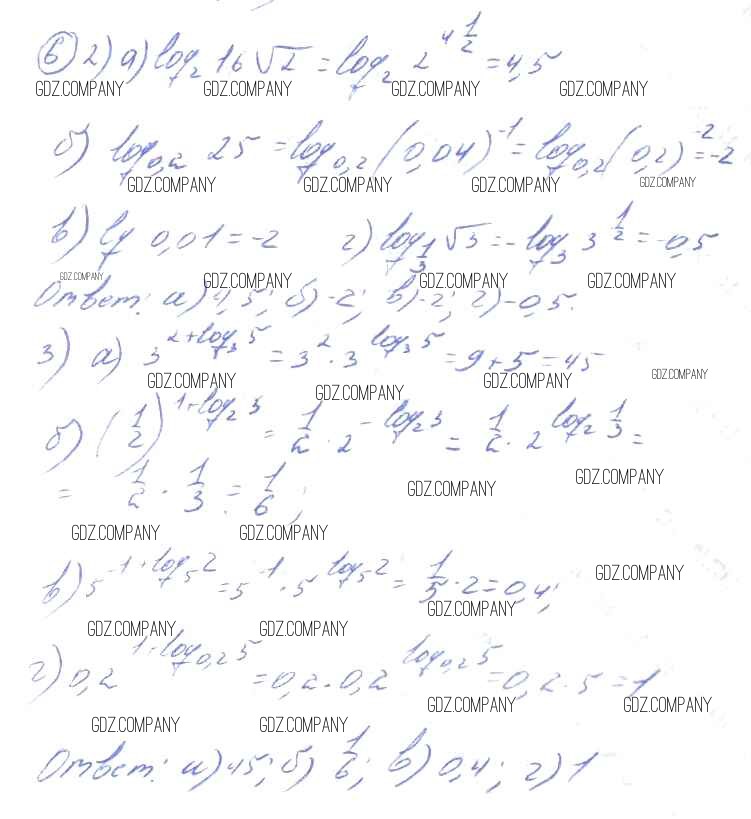 ⑥ 2) а) log₂ 16√2 = log₂ 2^(4 1/2) = 4,5
GDZ.COMPANY GDZ.COMPANY GDZ.COMPANY GDZ.COMPANY
б) log₀,₂ 25 = log₀,₂ (0,04)⁻¹ = log₀,₂ (0,2)⁻² = -2
GDZ.COMPANY GDZ.COMPANY GDZ.COMPANY GDZ.COMPANY
в) lg 0,01 = -2 г) log_(1/3) √3 = -log₃ 3^(1/2) = -0,5
GDZ.COMPANY GDZ.COMPANY GDZ.COMPANY GDZ.COMPANY
Ответ: а) 4,5; б) -2; в) -2; г) -0,5.
3) а) 3^(2+log₃5) = 3² · 3^(log₃5) = 9 + 5 = 45
GDZ.COMPANY GDZ.COMPANY GDZ.COMPANY GDZ.COMPANY
б) (1/2)^(1+log₂3) = 1/2 · 2^(-log₂3) = 1/2 · 2^(log₂ 1/3) =
= 1/2 · 1/3 = 1/6;
GDZ.COMPANY GDZ.COMPANY
GDZ.COMPANY GDZ.COMPANY
в) 5^(-1+log₅2) = 5⁻¹ · 5^(log₅2) = 1/5 · 2 = 0,4;
GDZ.COMPANY GDZ.COMPANY
GDZ.COMPANY GDZ.COMPANY
г) 0,2^(1+log₀,₂5) = 0,2 · 0,2^(log₀,₂5) = 0,2 · 5 = 1
GDZ.COMPANY GDZ.COMPANY
GDZ.COMPANY GDZ.COMPANY
Ответ: а) 45; б) 1/6; в) 0,4; г) 1